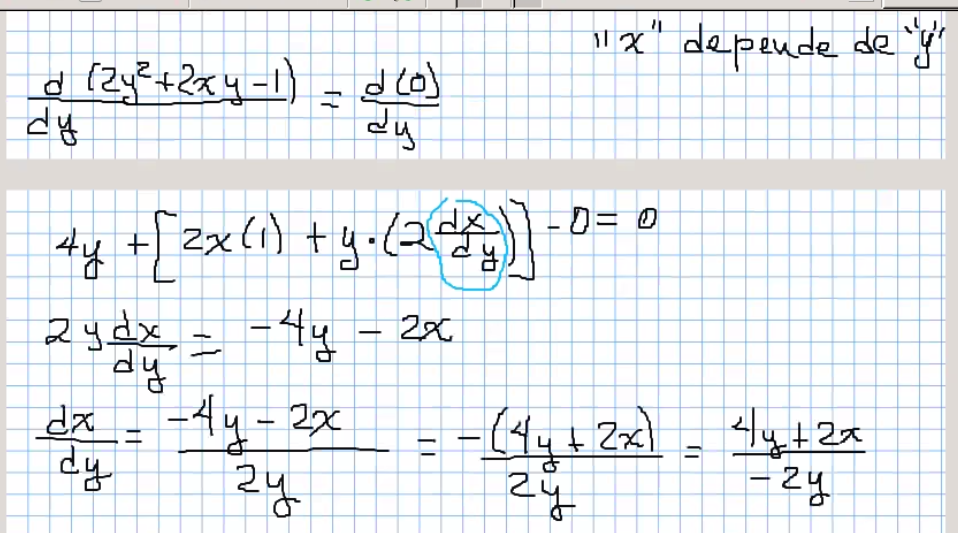 "x" depende de "y"
d (2y²+2xy-1) / dy = d(0) / dy
4y + [2x(1) + y·(2 dx/dy)] - 0 = 0
2y dx/dy = -4y - 2x
dx/dy = (-4y - 2x) / 2y = -(4y + 2x) / 2y = (4y + 2x) / -2y